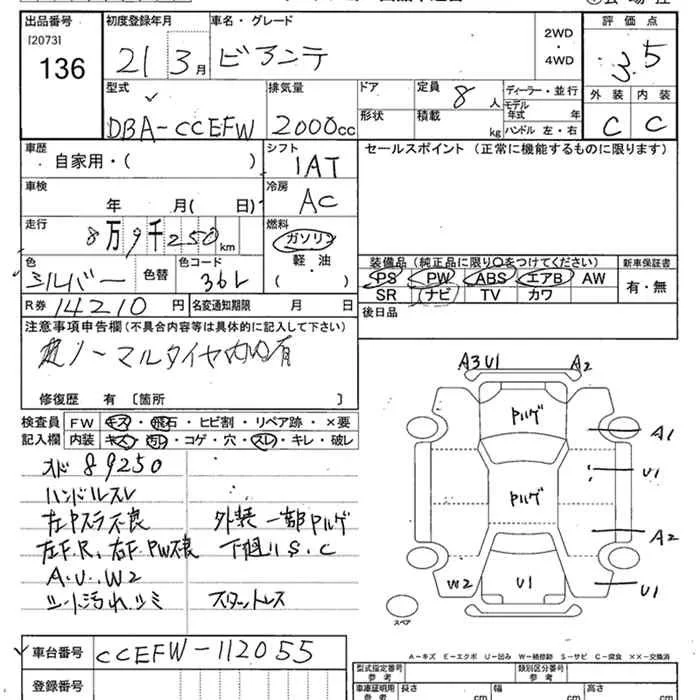 出品番号 初度登録年月 車名・グレード 評価点
[2073] 136 21 3月 ビアンテ 2WD・4WD 3.5
型式 排気量 ドア 定員 8人 ディーラー・並行 外装 内装
DBA-CCEFW 2000cc 形状 積載 kg モデル年式 年 C C
ハンドル 左・右
車歴 自家用・( ) シフト 1AT セールスポイント (正常に機能するものに限ります)
車検 年 月( 日) 冷房 AC
走行 8万9千250km 燃料 ガソリン 軽・油 ( )
色 シルバー 色替 色コード 36L 装備品(純正品に限り○をつけてください) 新車保証書
PS PW ABS エアB AW 有・無
SR ナビ TV カワ
R券 14210円 名変通知期限 月 日 後日品
注意事項申告欄(不具合内容等は具体的に記入して下さい)
ノーマルタイヤ 有
修復歴 有 〔箇所 〕
検査員 FW キズ・飛石・ヒビ割・リペア跡・×要
記入欄 内装 キズ・汚レ・コゲ・穴・スレ・キレ・破レ
89250
ハンドルスレ
左Pスラ不良 外装一部Pハゲ
左F.R、右F PW不良 下廻りS.C
A.U.W2
シート汚れシミ スタットレス
A3 U1 A2
Pハゲ
A1
U1
Pハゲ
A2
W2 U1 U1
スペア
A-キズ E-エクボ U-凹み W-補修跡 S-サビ C-腐食 ××-交換済
車台番号 CCEFW-112055
登録番号
型式指定番号 参考 類別区分番号 参考
車庫証明用 参考 長さ cm 幅 cm 高さ cm